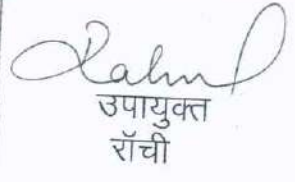 Rahul
उपायुक्त
राँची